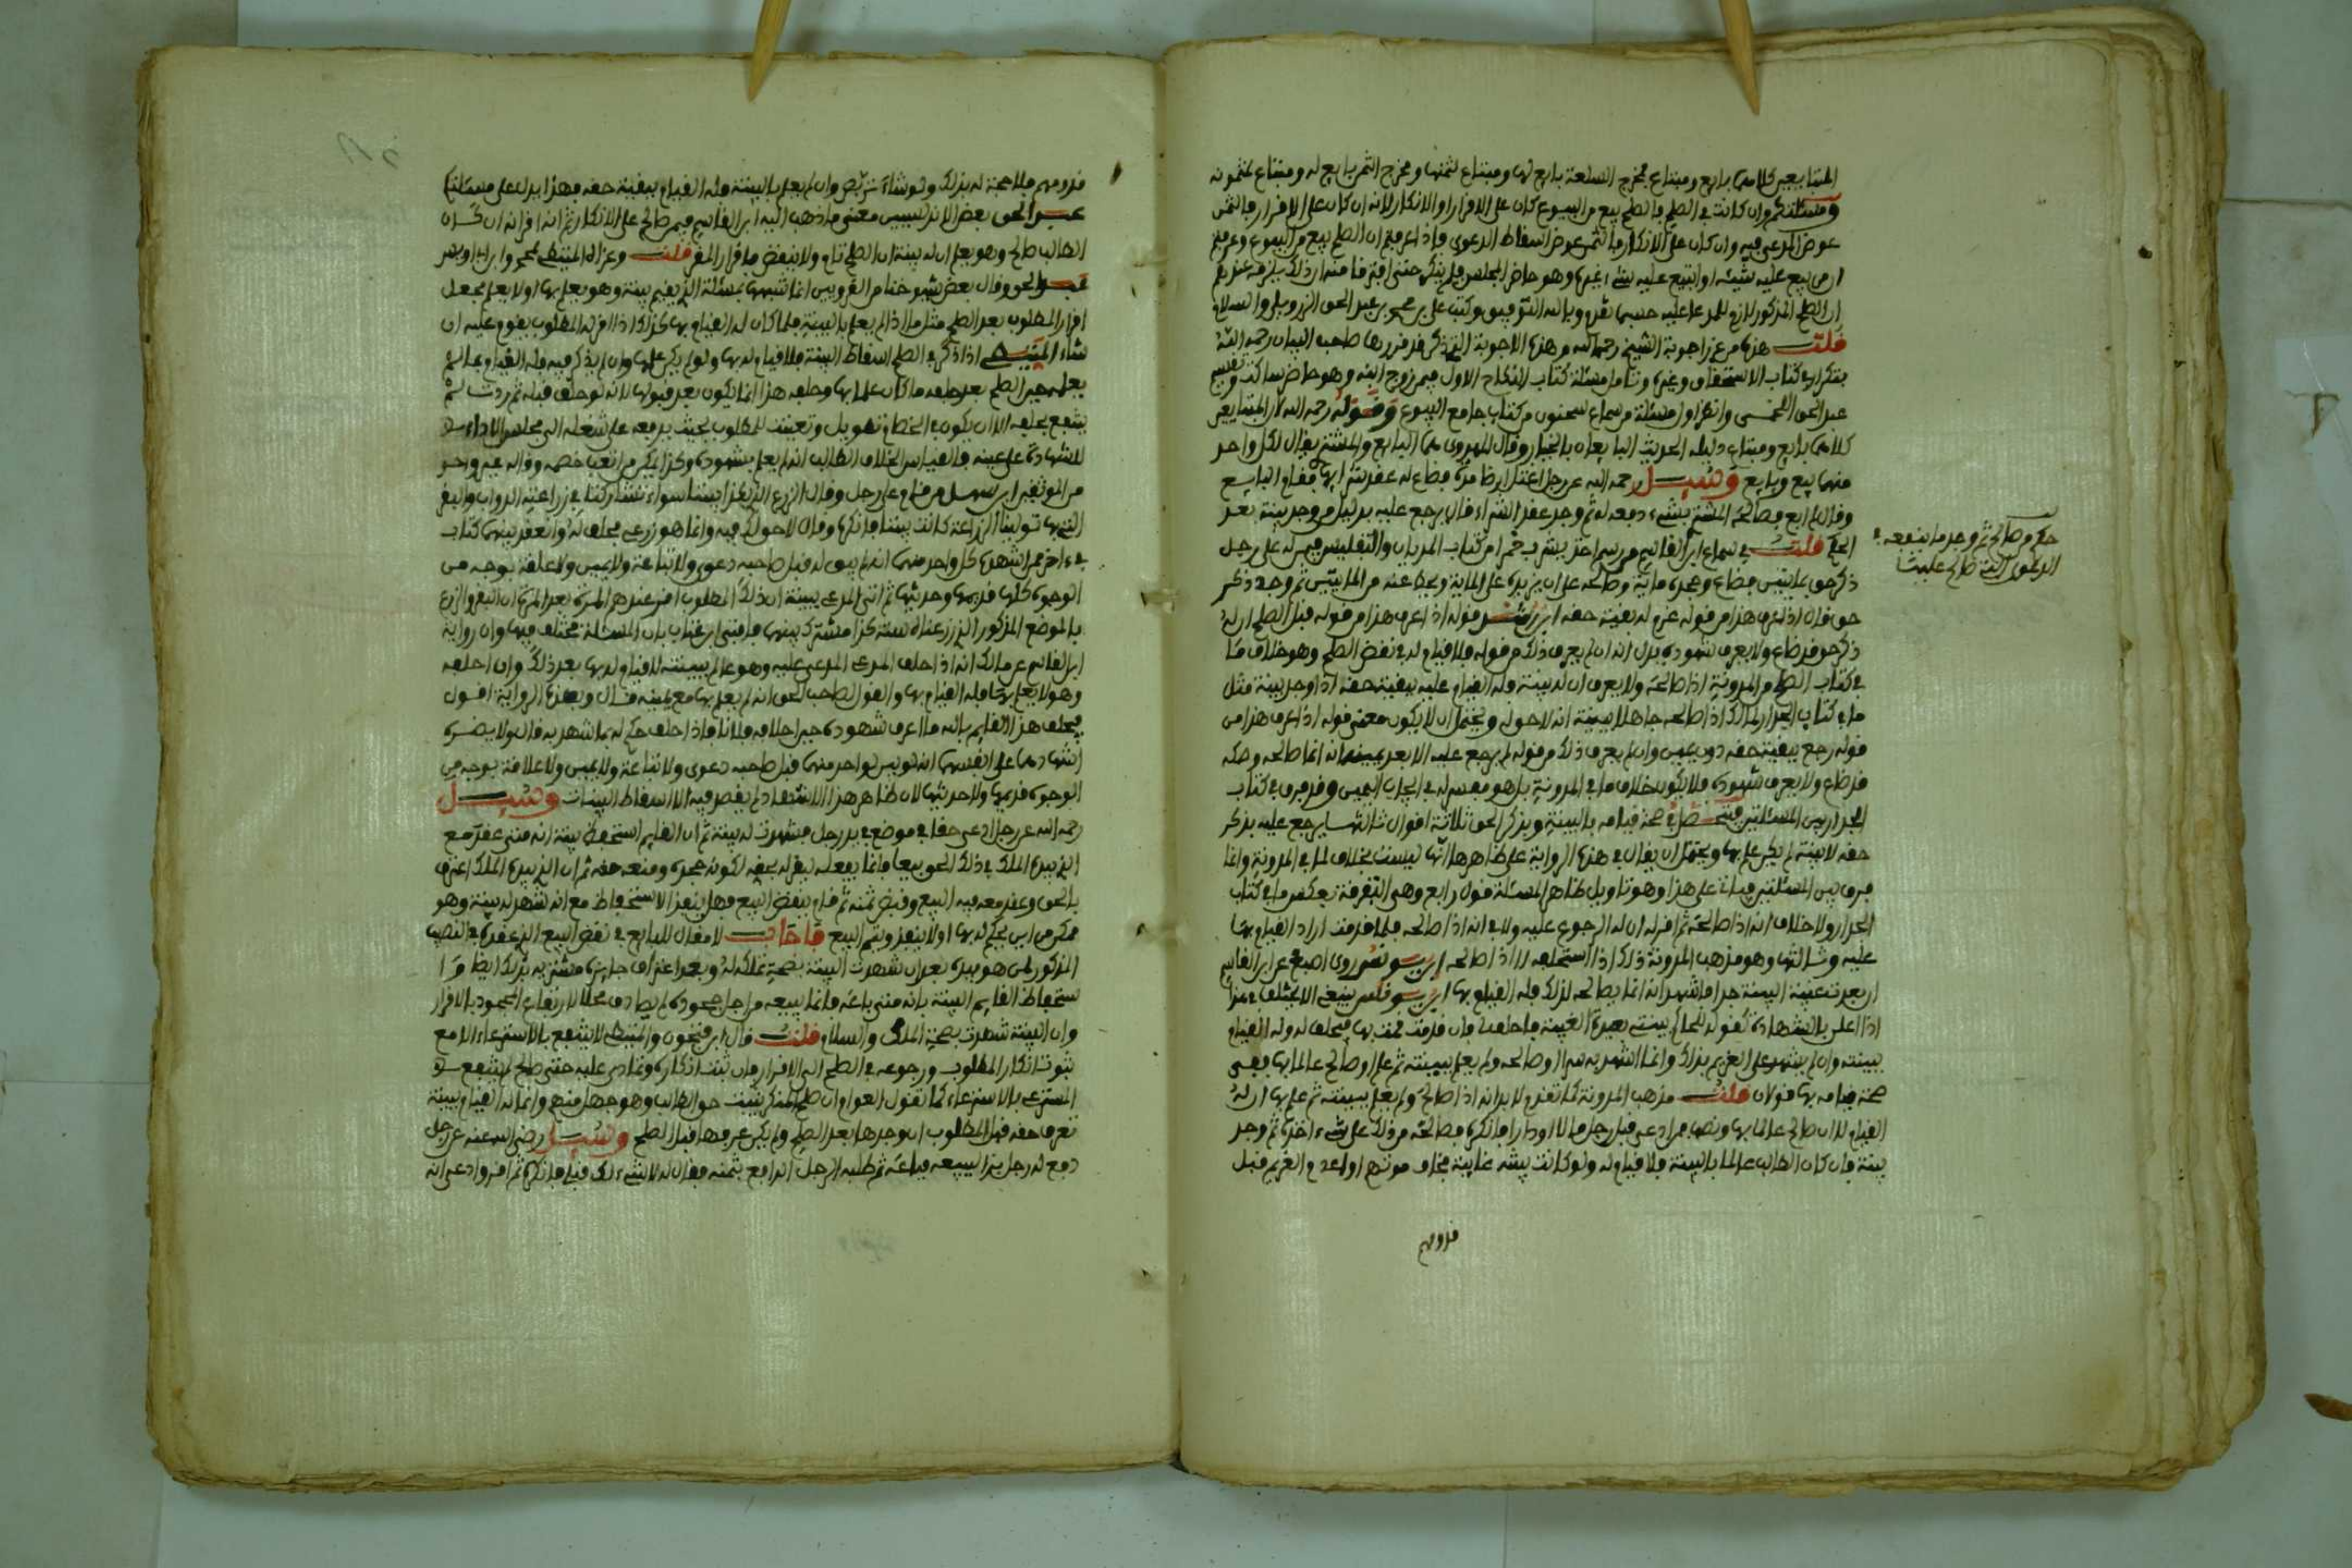 المتبايعين كلاهما بايع ومبتاع فمخرج السلعة بايع لها ومبتاع لثمنها ومخرج الثمن بايع له ومبتاع لمثمونه
ومسئلتكم وان كانت في الصلح فالصلح بيع من البيوع كان على الاقرار او الانكار لانه ان كان على الاقرار فالثمن
عوض المدعى فيه وان كان على الانكار فالثمن عوض اسقاط الدعوى فاذا عرفتم ان الصلح بيع من البيوع وعرفتم
ان من بيع عليه شيئه او ابتيع عليه شيء غيره وهو حاضر المجلس فلم ينكر حتى افترقا منه ان ذلك يلزمه عرفتم
ان الصلح المذكور لازم للمدعا عليه حسبما تقدم وبالله التوفيق وكتب علي بن محمد بن عبد الحق الزرويلي والسلام
قلت هذه من غرر اجوبة الشيخ رحمه الله وهذه الاجوبة التي ذكر قد قررها صاحب البيان رحمه الله
بتكرار في كتاب الاستحقاق وغيره وتامل مسئلة كتاب النكاح الاول فيمن زوج ابنه وهو حاضر ساكت
وانظر اول مسئلة من سماع سحنون من كتاب جامع البيوع وقوله رحمه الله لان المتبايعين
كلاهما بايع ومبتاع دليله الحديث البايعان بالخيار وقال الهروي هما البايع والمشتري يقال لكل واحد
منهما بيع وبايع وسئل رحمه الله عن رجل اعتل ارضا مدة فضاع له عقد شرائها فقام البايع
وقال لم ابع فصالحه المشتري بشيء دفعه له ثم وجد عقد الشراء قال يرجع عليه بدليل من وجد بينة بعد
الحكم قلت في سماع ابن القاسم من رسم اخذ يشرب خمرا من كتاب المديان والتفليس فيمن له على رجل
ذكر حق بمايتين فضاع وجحده ماية وصالحه على ان يزيده على الماية ويحط عنه من المايتين ثم وجد ذكر
حق قال اذا عرف هذا من قوله غرم له بقية حقه ابن رشد قوله اذا عرف هذا من قوله قبل الصلح ان له
ذكر حق قد ضاع ولا يعرف شهوده يدل انه ان لم يعرف ذلك من قوله فلا قيام له في نقض الصلح وهو خلاف ما
في كتاب الصلح من المدونة اذا صالحه ولا يعرف ان له بينة وله القيام عليه ببقية حقه اذا وجد بينة مثل
ما في كتاب الجدار لمالك اذا صالحه جاهلا ببينته انه لا حق له ويحتمل ان لا يكون معنى قوله اذا عرف هذا من
قوله رجع ببقية حقه دون يمين وان لم يعرف ذلك من قوله لم يرجع عليه الا بعد يمينه انه انما صالحه وصكه
قد ضاع ولا يعرف شهوده فلا يكون خلاف ما في المدونة بل هو مفسر له في ايجاب اليمين وقد فرق في كتاب
الجدار بين المسئلتين فتحصل في صحة قيامه بالبينة وبذكر الحق ثلاثة اقوال ثالثها يرجع عليه بذكر
حقه لا ببينة لم يكن علم بها ويحتمل ان يقال في هذه الرواية على ظاهرها انها ليست بخلاف لما في المدونة وانما
فرق بين المسئلتين فياتي على هذا وهو تاويل ظاهر المسئلة قول رابع وهي التفرقة بعكس ما في كتاب
الجدار ولا خلاف انه اذا صالحه ثم اقر له ان له الرجوع عليه ولا في انه اذا صالحه فلما قدمت اراد القيام بها
عليه وثالثها وهو مذهب المدونة ذلك اذا استحلفه لا اذا صالحه ابن يونس روى اصبغ عن ابن القاسم
ان بعدت غيبة البينة جدا فاشهد انه انما يصالحه لذلك فله القيام بها ابن يونس ينبغي الا يختلف في هذا
اذا اعلن بالشهادة كقوله للحاكم بينتي بعيدة الغيبة فاحلفه فان قدمت قمت بها فيحلف له وله القيام
ببينته وان لم يشهد على الغريم بذلك وانما اشهد به سرا او صالحه ولم يعلم ببينته ثم علم او صالح عالما بها ففي
صحة قيامه بها قولان قلت مذهب المدونة كما تقدم لابد انه اذا صالح ولم يعلم ببينته ثم علم بها ان له
القيام لا ان صالح عالما بها ونصها من ادعى قبل رجل مالا او دارا فانكره فصالحه من ذلك على شيء اخذه ثم وجد
بينة فان كان الطالب عالما بالبينة فلا قيام له ولو كانت بينته غايبة يخاف موتهم او اعدام الغريم قبل
قدومهم
حكم من صالح ثم وجد ما ينفعه في
الدعوى التي صالح عليها
قدومهم فلا حجة له بذلك ولو شاء تربص وان لم يعلم بالبينة وله القيام ببقية حقه وهذا يدل على مسئلة
عبد الحق بعض الاندلسيين معنى ما ذهب اليه ابن القاسم فيمن صالح على الانكار ثم انه اقر انه ان كان
الطالب صالح وهو يعلم ان له بينة ان الصلح تام ولا ينتقض باقرار المقر قلت وعزاه المتيطي لمحمد وابن لبابة
عبد الحق وقال بعض شيوخنا من القرويين انما تشبهها بمسئلة الذي يقيم بينة وهو يعلم بها او لا يعلم فجعل
اقرار المطلوب بعد الصلح مثل ما اذا لم يعلم بالبينة فلما كان له القيام بها كذلك اذا اقر له المطلوب يقوم عليه ان
شاء المتيطي اذا ذكر في الصلح اسقاط البينة فلا قيام له بها ولو لم يكن علمها وان لم يذكر فيه فله القيام بما لم
يعلمه حين الصلح بعد حلفه ما كان عالما بها وحلفه هذا انما يكون بعد قبولها لانه لو حلف قبله ثم ردت لم
ينتفع بحلفه الا ان يكون في الخصام تهويل وتعنيت للمطلوب بحيث يرفعه على شغله الى مجلس الاداء
للشهادة على عينه فالقياس احلاف الطالب انه لم يعلم بشهوده وكذا يمكن من اتعب خصمه وقاله غير واحد
من الموثقين ابن سهل من قام على رجل وقال الزرع الذي هذا بيننا سواء تشاركنا في زراعته الدواب والبقر
التي بها تولينا الزراعة كانت بيننا فانكره وقال لا حق لك فيه وانما هو زرعي فحلف له وانعقد بينهما كتاب
في اخر عمر الشهدة كل واحد منهما انه لم يبق له قبل صاحبه دعوى ولا تباعة ولا يمين ولا علقة بوجه من
الوجوه كلها قديمها وحديثها ثم اتى المدعي ببينة ان ذلك المطلوب اقر عندهم ان البقر والزرع
بالموضع المذكور الذي زرعناه سنة كذا مشترك بينهما فافتى ابن عتاب بان المسئلة مختلف فيها وان رواية
ابن القاسم عن مالك انه اذا حلف المدعى عليه وهو عالم ببينته لا قيام له بها بعد ذلك وان احلفه
وهو لا يعلم بها فله القيام بها والقول لصاحب الحق انه لم يعلم بها مع يمينه قال وبهذه الرواية اقول
فيحلف هذا القايم بالله ما اعرف شهوده حين احلافه فلانا فاذا حلف حكم له بما شهد به قال ولا يضره
اشهادهما على انفسهما انه لم يبق لواحد منهما قبل صاحبه دعوى ولا تباعة ولا يمين ولا علاقة بوجه من
الوجوه قديمها ولا حديثها لان ظاهر هذا الاشهاد لم يقصد فيه الا اسقاط البينات وسئل
رحمه الله عن رجل ادعى حقا في موضع في يد رجل فشهدت له بينة ثم ان القايم استحفظ بينة انه متى عقد مع
الذي بيده الملك في ذلك الحق بيعا فانما يفعله ليقر له بحقه لكونه جحده ومنعه حقه ثم ان الذي بيده الملك اعترف
بالحق وعقد معه فيه البيع وقبض ثمنه ثم قام بنقض البيع فهل ينفذ الاستحفاظ مع انه شهد له بينة وهو
متمكن من ان يحكم له بها او لا ينفذ ويتم البيع فاجاب لا مقال للبايع في نقض البيع الذي عقده في النصيب
المذكور لمن هو بيده بعد ان شهدت البينة بصحة تملكه له وبعد اعتراف حايزه مشتريه بذلك ايضا وما
ستحفاظ القايم البينة بانه متى باعه فانما يبيعه من اجل جحوده لم يصادف محلا لارتفاع الجحود بالاقرار
وان البينة شهدت بصحة الملك والسلام قلت قال ابن فتحون والمتيطي لا ينتفع بالاسترعاء الا مع
ثبوت انكار المطلوب ورجوعه في الصلح الى الاقرار فان ثبت انكاره وتمادى عليه حتى صالح لم ينتفع
المسترعي بالاسترعاء كما تقول العوام ان صلح المنكر يثبت حق الطالب وهو جهل منهم وانما له القيام ببينة
تعرف حقه قبل المطلوب ان وجدها بعد الصلح ولم يكن عرفها قبل الصلح وسئل رضي الله عنه عن رجل
دفع له رجل بزا ليبيعه فباعه ثم طلبه الرجل الدافع بثمنه فقال له لا شيء لك قبلي فانكره ثم اقر وادعى انه